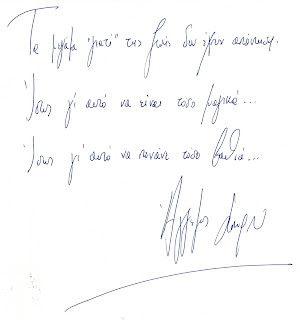 Τα μεγάλα "γιατί" της ζωής δεν έχουν απάντηση.
Ίσως γι αυτό να είναι τόσο μαγικά...
Ίσως γι' αυτό να πονάνε τόσο βαθιά...